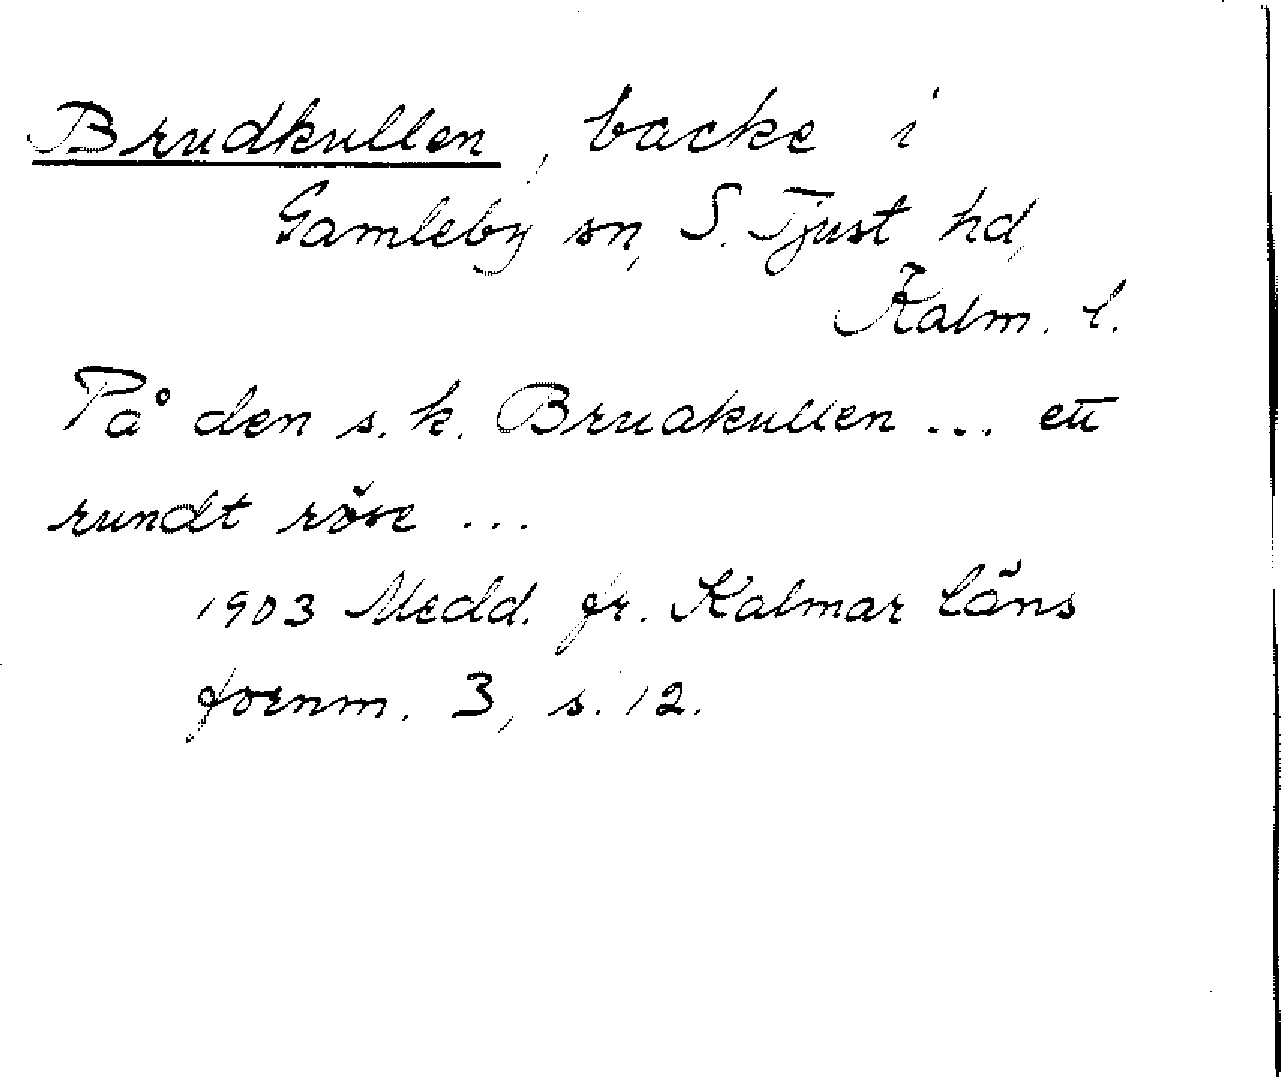 Brudkullen, backe i
Gamleby sn, S. Tjust hd,
Kalm. l.
På den s. k. Brudkullen ... ett
rundt röse ...
1903 Medd. fr. Kalmar läns
fornm. 3, s. 12.